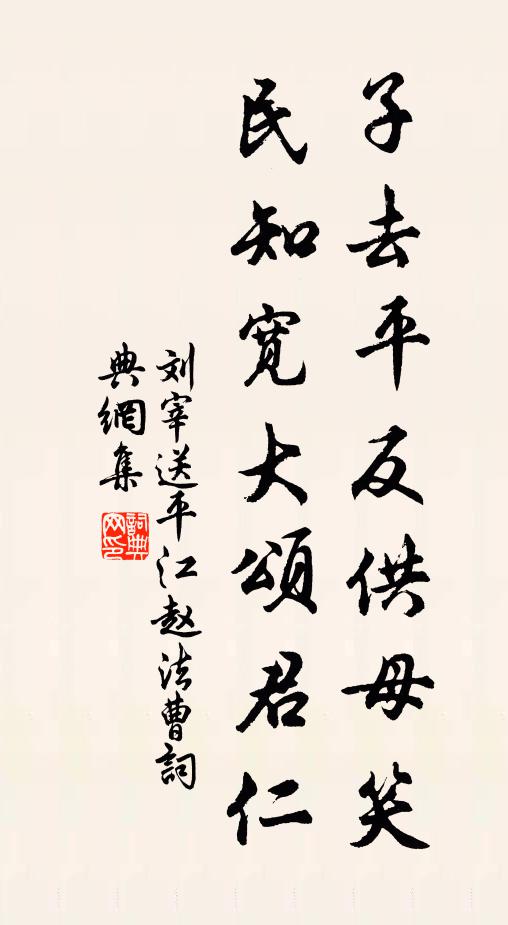 子去平反供母笑
民知宽大颂君仁
刘宰送平江赵法曹詞
典網集
詞典网印